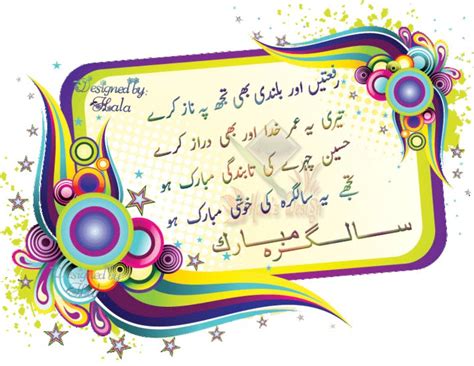 Designed by:
Hala
رفعتیں اور بلندی بھی تجھ پہ ناز کرے
تیری یہ عمر خدا اور بھی دراز کرے
حسین چہرے کی تابندگی مبارک ہو
تجھے یہ سالگرہ کی خوشی مبارک ہو
سالگرہ مبارک